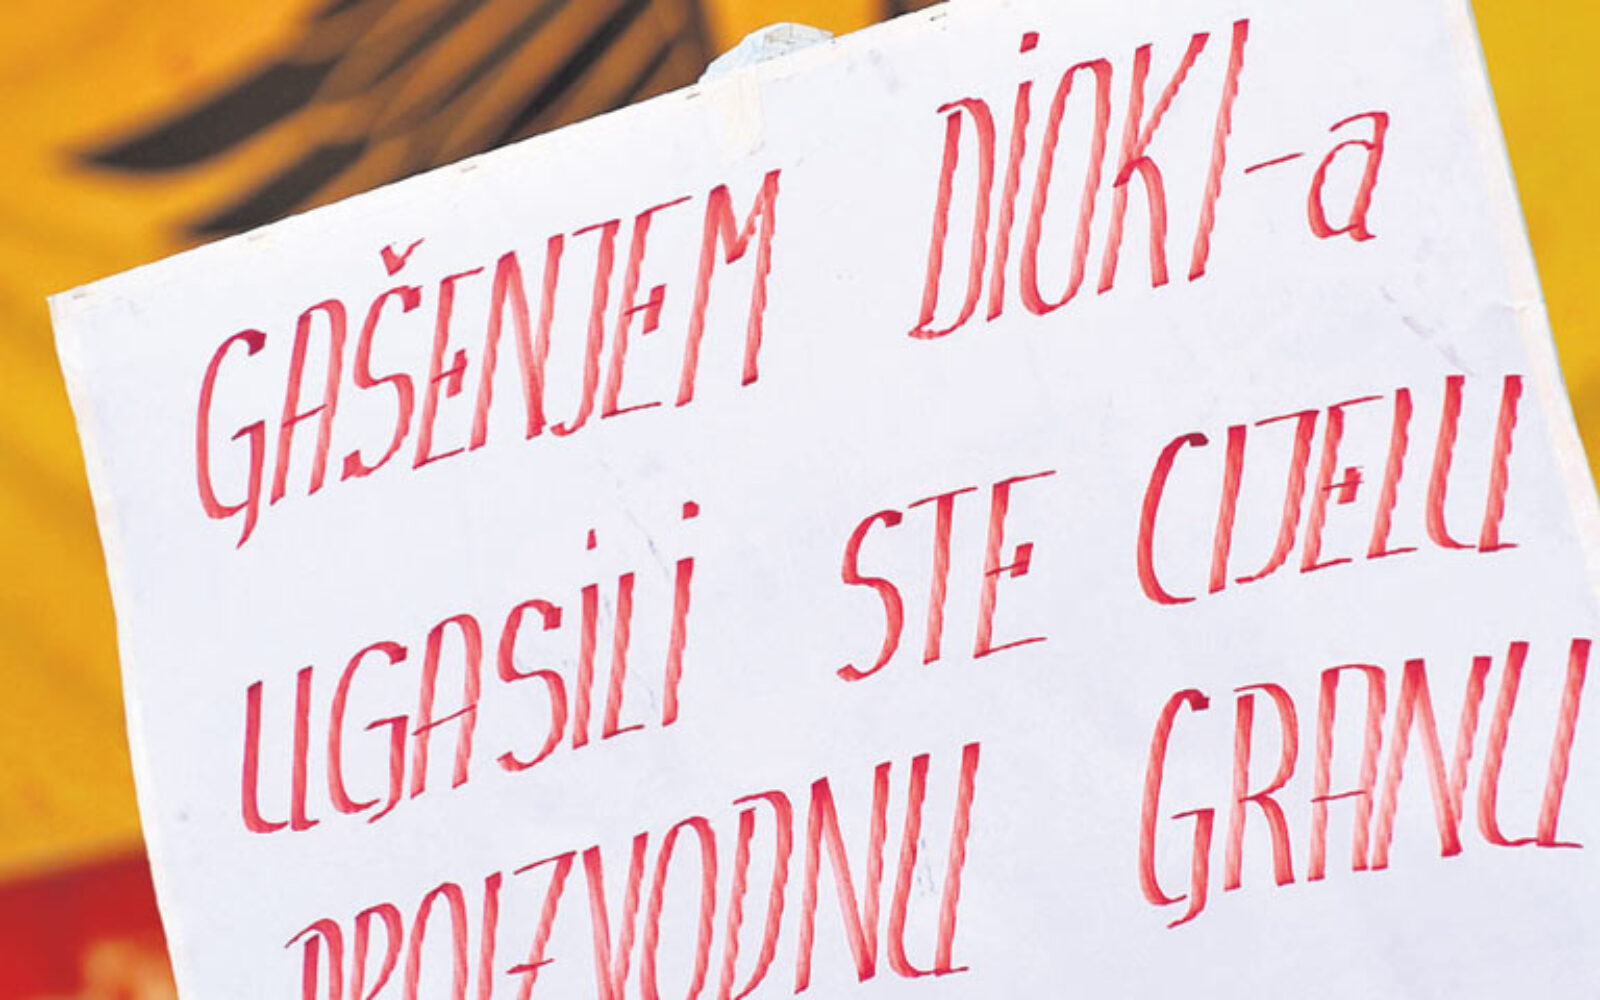 GAŠENJEM DİOKI-a
UGASİLİ STE CIJELU
PROIZVODNU GRANU